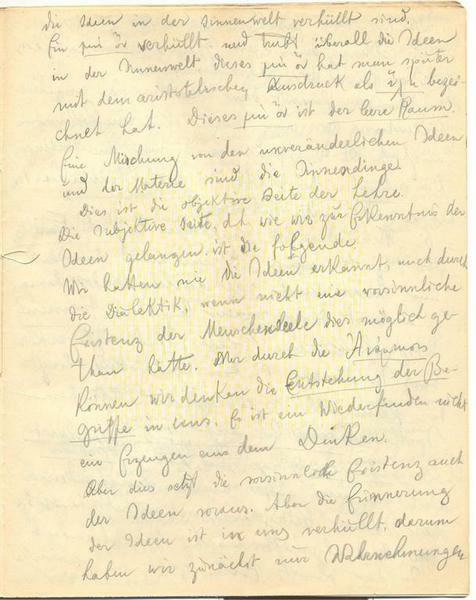 die Ideen in der Sinnenwelt verhüllt sind.
Ein μὴ ὄν verhüllt und trübt überall die Ideen
in der Sinnenwelt dieses μὴ ὄν hat man später
mit dem aristotelischen Ausdruck als ὕλη bezei-
chnet hat. Dieses μὴ ὄν ist der leere Raum.
Eine Mischung von den unveränderlichen Ideen
und der Materie sind die Sinnendinge.
Dies ist die objektive Seite der Lehre.
Die subjektive Seite, d.h. wie wir zur Erkenntnis der
Ideen gelangen ist die folgende.
Wir hätten nie die Ideen erkannt, auch durch
die Dialektik, wenn nicht eine vorsinnliche
Existenz der Menschenseele dies möglich ge-
than hätte. Nur durch die
können wir denken die Entstehung der Be-
griffe in uns. Es ist ein Wiederfinden nicht
ein Erzeugen aus dem Denken.
Aber dies setzt die vorsinnliche Existenz auch
der Ideen voraus. Aber die Erinnerung
der Ideen ist in uns verhüllt, darum
haben wir zunächst nur Wahrnehmungen